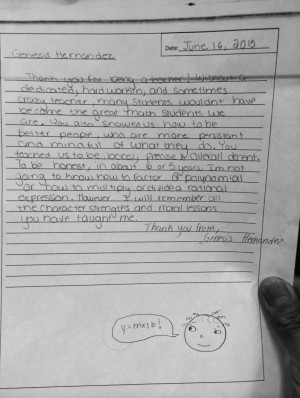 Genesis Hernandez
Date: June 16, 2015
Thank you for being a teacher! Without a
dedicated, hard workin, and sometimes
crazy teacher, many students wouldn't have
become the great math students we
are. You also showed us how to be
better people, who are more persistant
and mindful of what they do. You
teached us to be, precise & overall
To be honest, in about 6 or 5 years, I'm not
going to know how to factor a polynomial
or how to multiply or divide a rational
expression. However, I will remember all
the character strengths and moral lessons
you have taught me.
Thank you from,
Genesis Hernandez